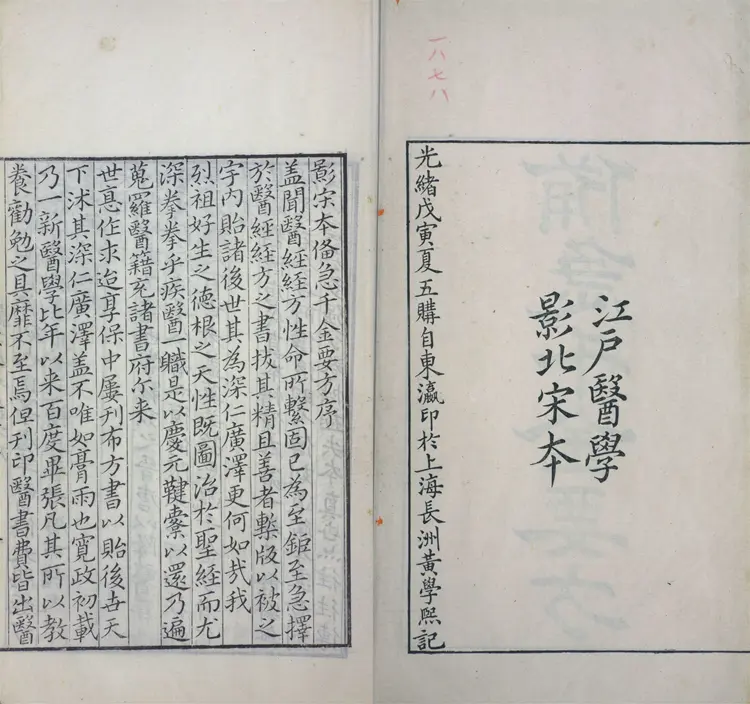 一八七八
江戶醫學
影北宋本
光緒戊寅夏五購自東瀛印於上海長洲黃學熙記
影宋本俻急千金要方序
盖聞醫經經方性命所繫固已為至鉅至急擇
於醫經經方之書拔其精且善者槧版以被之
宇內貽諸後世其為深仁廣澤更何如㢤我
烈祖好生之德根之天性既圖治於聖經而尤
深拳拳乎疾醫一職是以慶元鞬櫜以還乃遍
蒐羅醫籍充諸書府尔来
世憙作求迨享保中屢刊布方書以貽後世天
下沭其深仁廣澤盖不唯如膏雨也寬政初載
乃一新醫學比年以来百度畢張凡其所以教
養勸勉之具靡不至焉但刊印醫書費皆出醫